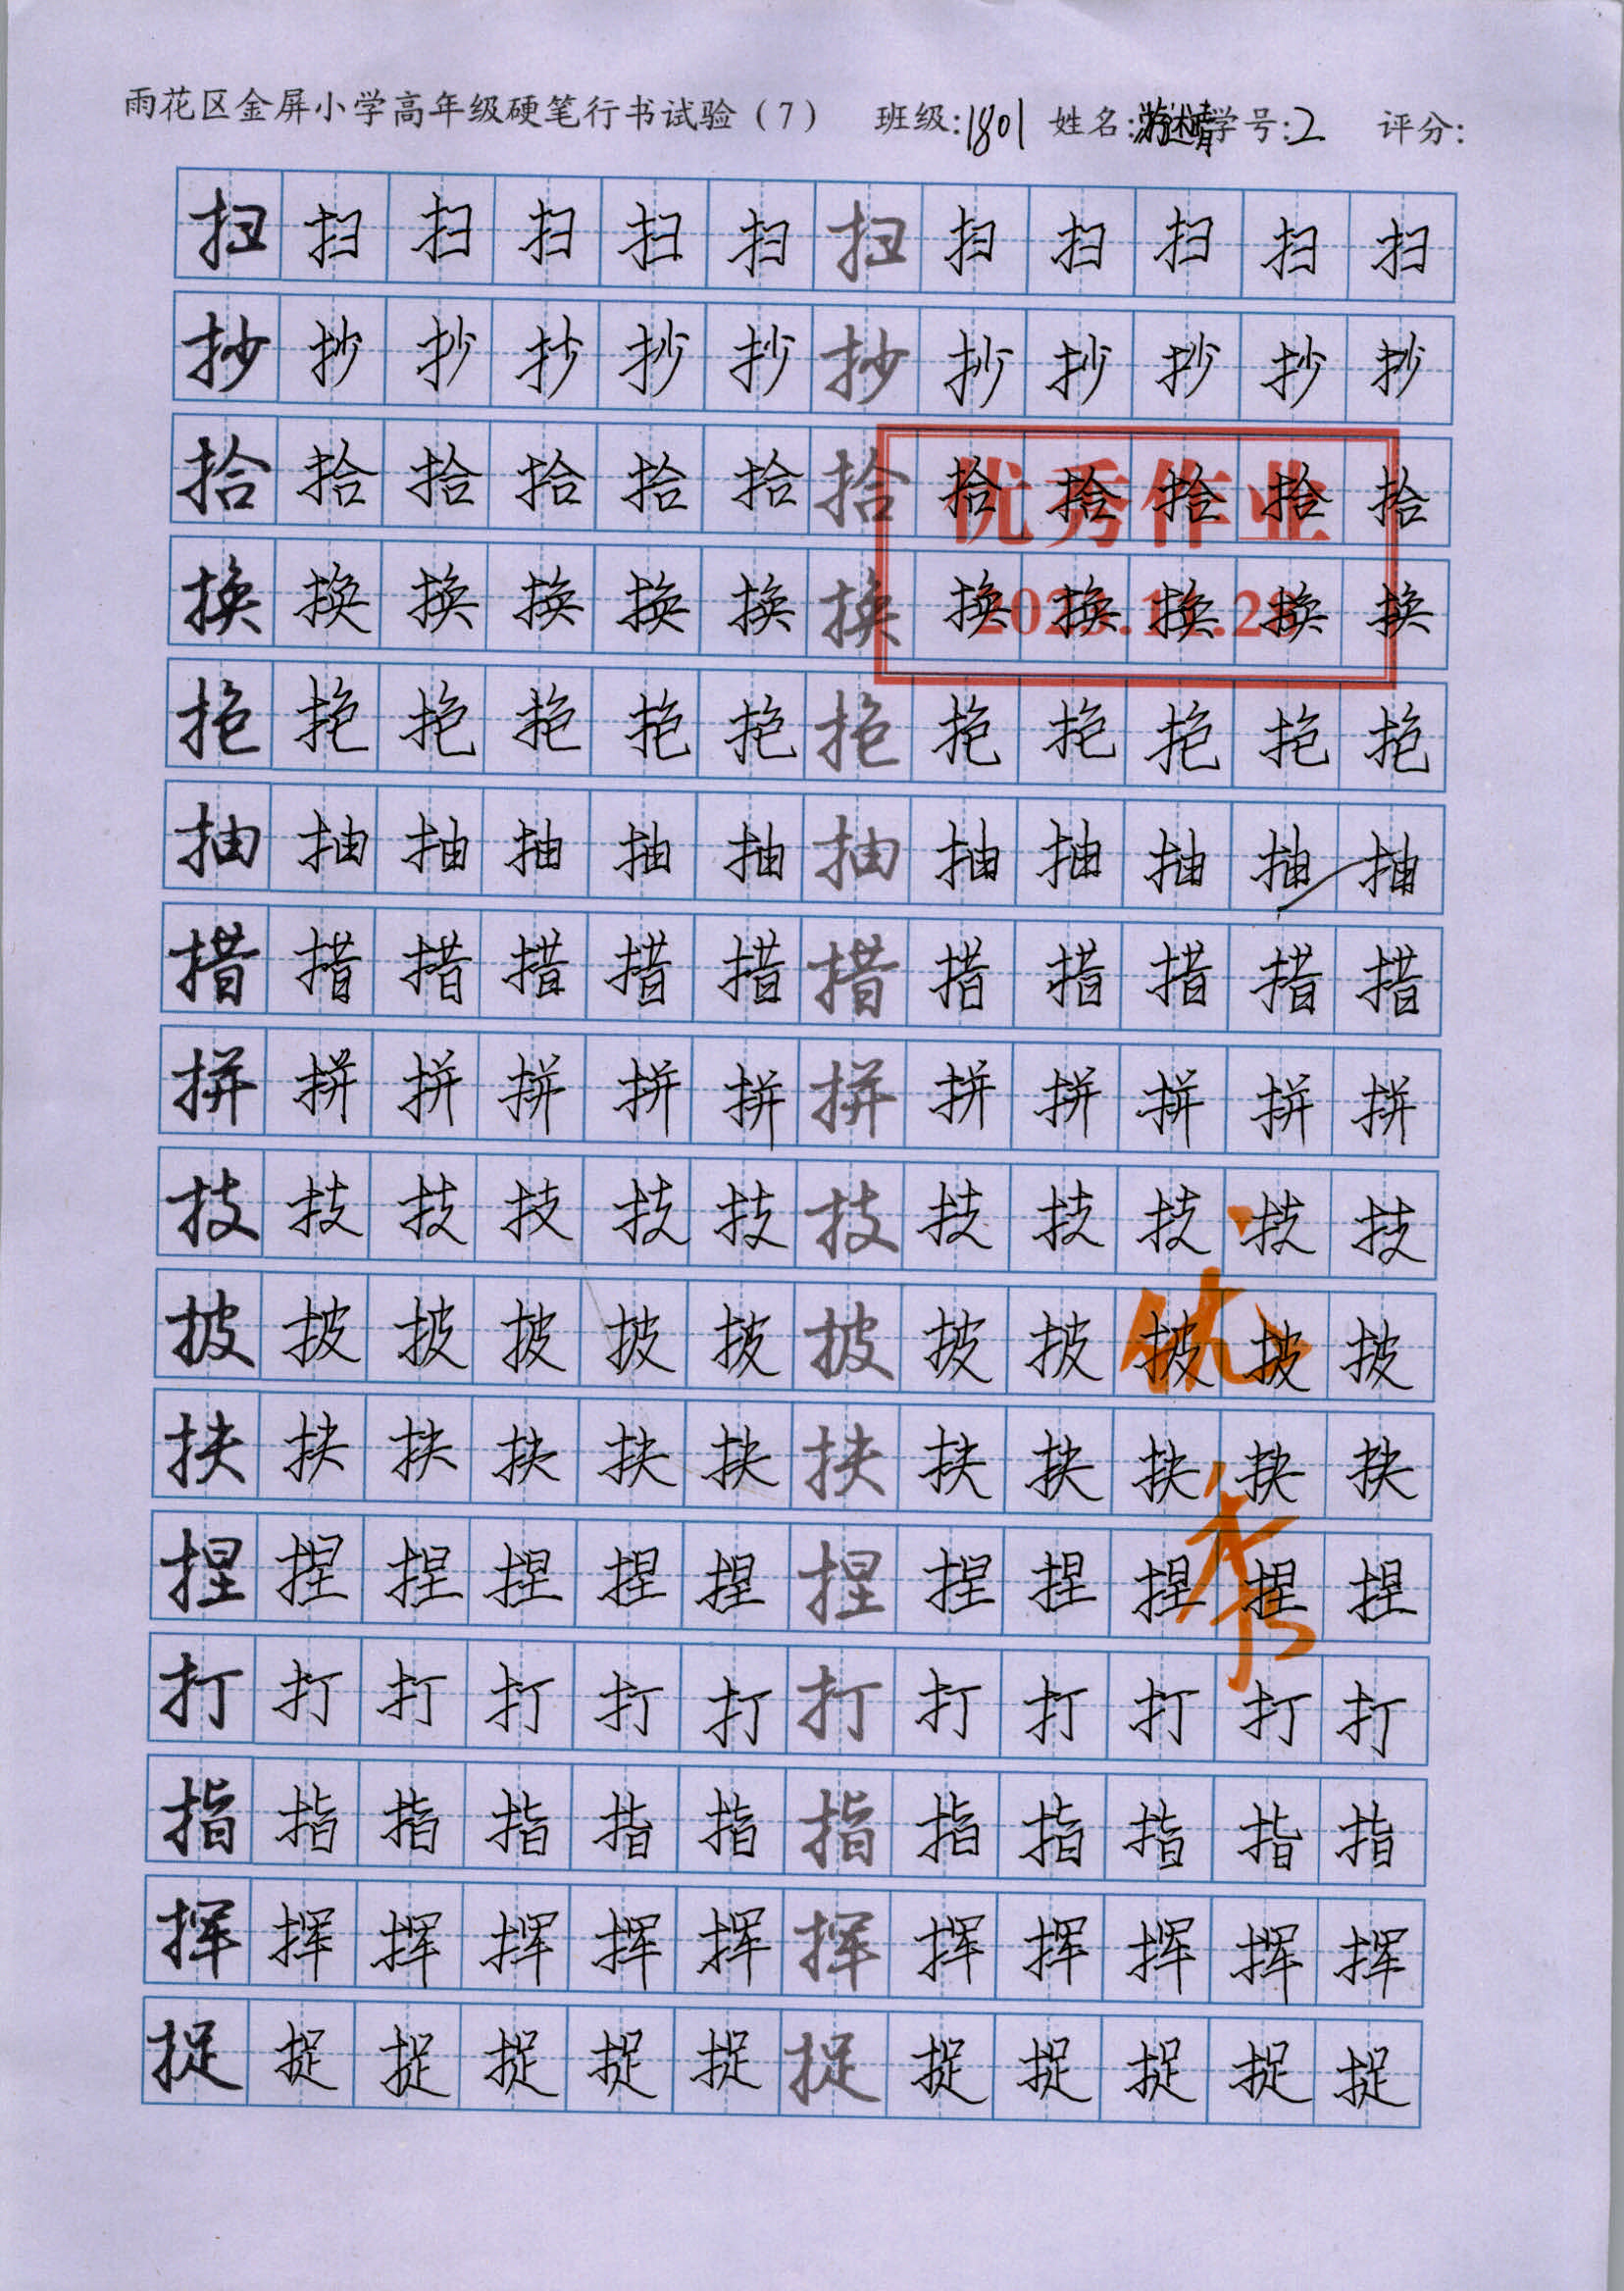 雨花区金屏小学高年级硬笔行书试验（7） 班级:1801 姓名: 学号:2 评分:
扫扫扫扫扫扫扫扫扫扫扫扫
抄抄抄抄抄抄抄抄抄抄抄抄
拾拾拾拾拾拾拾拾拾拾拾拾
优秀作业
换换换换换换换换换换换换
抽抽抽抽抽抽抽抽抽抽抽抽
措措措措措措措措措措措措
拼拼拼拼拼拼拼拼拼拼拼拼
技技技技技技技技技技技技
披披披披披披披披披披披披
优秀
扶扶扶扶扶扶扶扶扶扶扶扶
捏捏捏捏捏捏捏捏捏捏捏捏
打打打打打打打打打打打打
指指指指指指指指指指指指
挥挥挥挥挥挥挥挥挥挥挥挥
捉捉捉捉捉捉捉捉捉捉捉捉